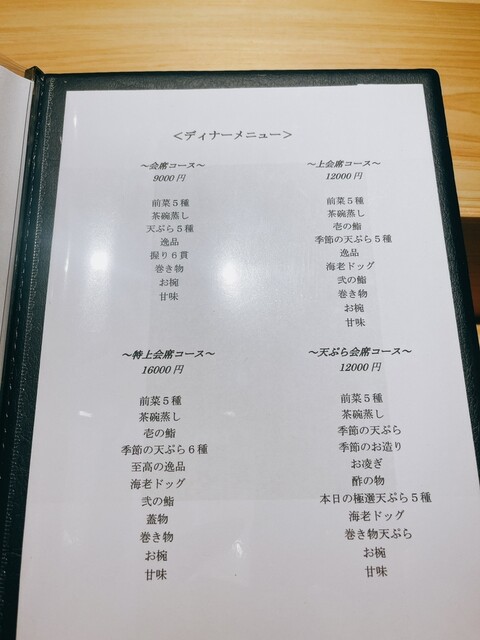 <ディナーメニュー>
～会席コース～
9000 円
前菜５種
茶碗蒸し
天ぷら５種
逸品
握り６貫
巻き物
お椀
甘味
～上会席コース～
12000 円
前菜５種
茶碗蒸し
壱の鮨
季節の天ぷら５種
逸品
海老ドッグ
弐の鮨
巻き物
お椀
甘味
～特上会席コース～
16000 円
前菜５種
茶碗蒸し
壱の鮨
季節の天ぷら６種
至高の逸品
海老ドッグ
弐の鮨
蓋物
巻き物
お椀
甘味
～天ぷら会席コース～
12000 円
前菜５種
茶碗蒸し
季節の天ぷら
季節のお造り
お凌ぎ
酢の物
本日の極選天ぷら５種
海老ドッグ
巻き物天ぷら
お椀
甘味